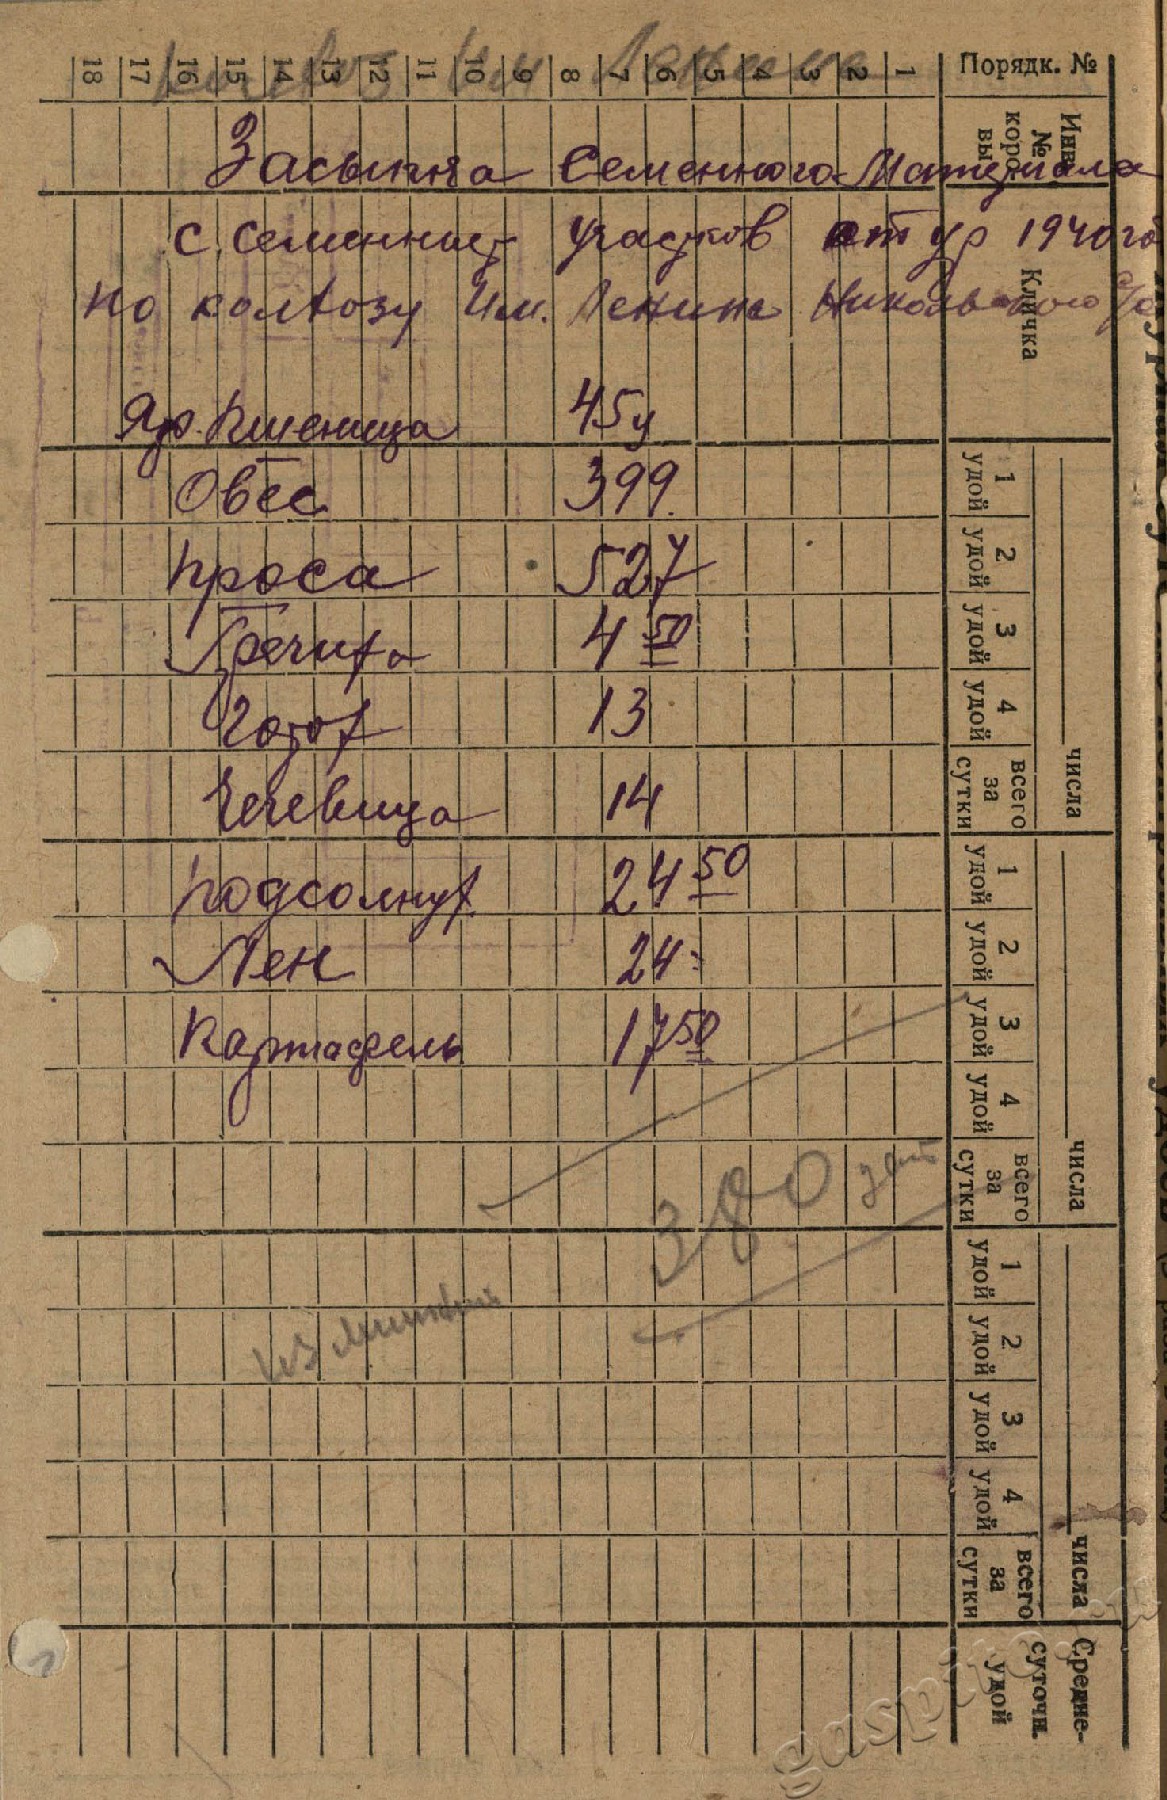 им Ленина
18 17 16 15 14 13 12 11 10 9 8 7 6 5 4 3 2 1 Порядк. №
Инв. № коро вы
Засыпка Семенного Материала
с. семенных участков 1940 го
Кличка
по колхозу Им. Ленина Никольского с/с
Яр. Пшеница 45 ц
Овес 399.
проса 527
Гречиха 4 50
Горох 13
Чечевица 14
подсолнух 24 50
Лен 24 =
Картафель 17 50
380
из
числа
1 удой
2 удой
3 удой
4 удой
всего за сутки
числа
1 удой
2 удой
3 удой
4 удой
всего за сутки
числа
1 удой
2 удой
3 удой
4 удой
всего за сутки
Средне-
суточн.
удой